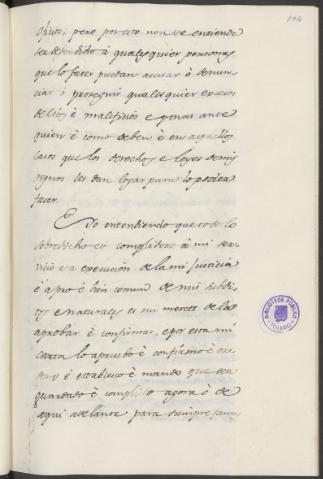 104
oficios; pero por esto non se entienda
ser defendido à qualesquier personas
que lo facer puedan acusar ò denun-
ciar ò proseguir qualesquier exceso
delitos è maleficios e penas ante
quien è como deben è en aquellos
casos que los derechos e leyes de mis
regnos les dan logar para lo poder
facer.
E Yo entendiendo que todo lo
sobredicho es complidero à mi ser-
vicio e a execucion de la mi justicia
è a pro è bien comun de mis subdi-
tos e naturales es mi merced de lo
aprobar è confirmar, e por esta mi
carta lo apruebo è confirmo è or-
deno è establezco è mando que sea
guardado è complido agora è de
aqui adelante para siempre jamas
BIBLIOTECA PUBLICA
TOLEDO